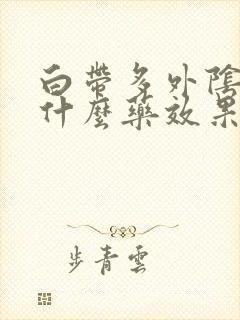 白帶多外陰
什麼藥效果
步青雲